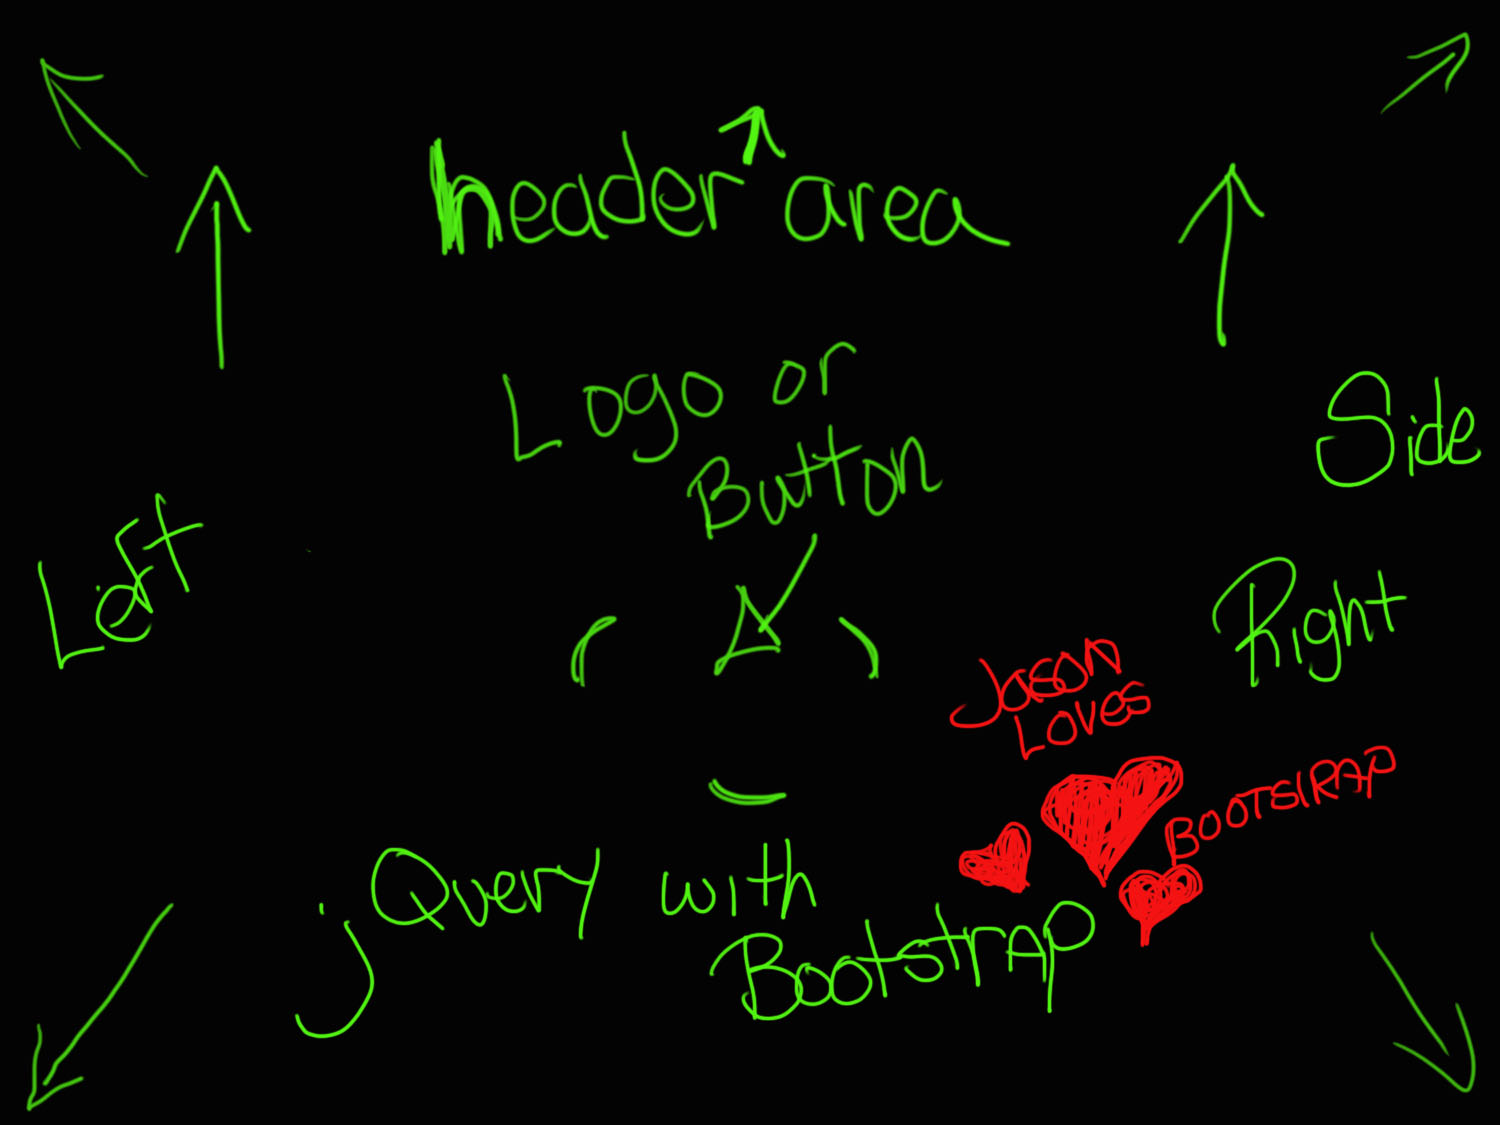 header area
Logo or
Button
Side
Left
Right
Jason
Loves
BOOTSTRAP
jQuery with
Bootstrap